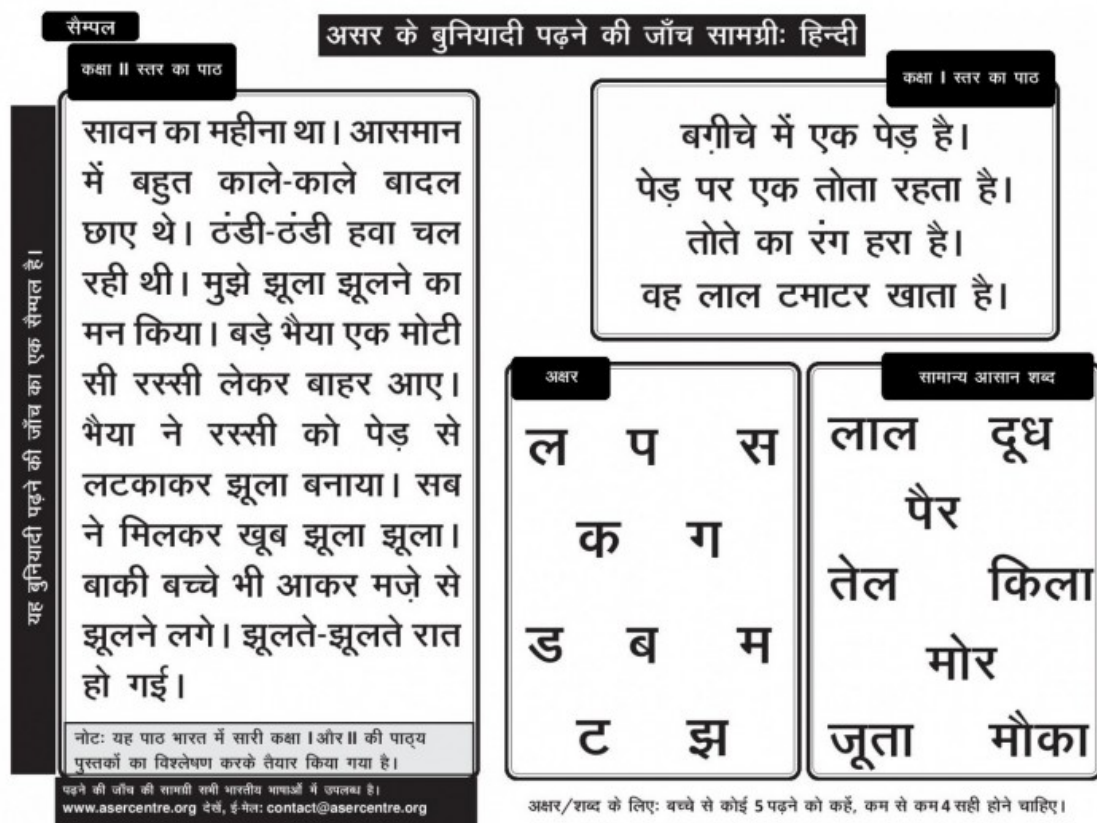 सैम्पल
असर के बुनियादी पढ़ने की जाँच सामग्रीः हिन्दी
यह बुनियादी पढ़ने की जाँच का एक सैम्पल है।
कक्षा II स्तर का पाठ
सावन का महीना था। आसमान
में बहुत काले-काले बादल
छाए थे। ठंडी-ठंडी हवा चल
रही थी। मुझे झूला झूलने का
मन किया। बड़े भैया एक मोटी
सी रस्सी लेकर बाहर आए।
भैया ने रस्सी को पेड़ से
लटकाकर झूला बनाया। सब
ने मिलकर खूब झूला झूला।
बाकी बच्चे भी आकर मज़े से
झूलने लगे। झूलते-झूलते रात
हो गई।
नोटः यह पाठ भारत में सारी कक्षा I और II की पाठ्य
पुस्तकों का विश्लेषण करके तैयार किया गया है।
पढ़ने की जाँच की सामग्री सभी भारतीय भाषाओं में उपलब्ध है।
www.asercentre.org देखें, ई-मेल: contact@asercentre.org
कक्षा I स्तर का पाठ
बग़ीचे में एक पेड़ है।
पेड़ पर एक तोता रहता है।
तोते का रंग हरा है।
वह लाल टमाटर खाता है।
अक्षर
ल प स
क ग
ड ब म
ट झ
सामान्य आसान शब्द
लाल दूध
पैर
तेल किला
मोर
जूता मौका
अक्षर/शब्द के लिएः बच्चे से कोई 5 पढ़ने को कहें, कम से कम 4 सही होने चाहिए।